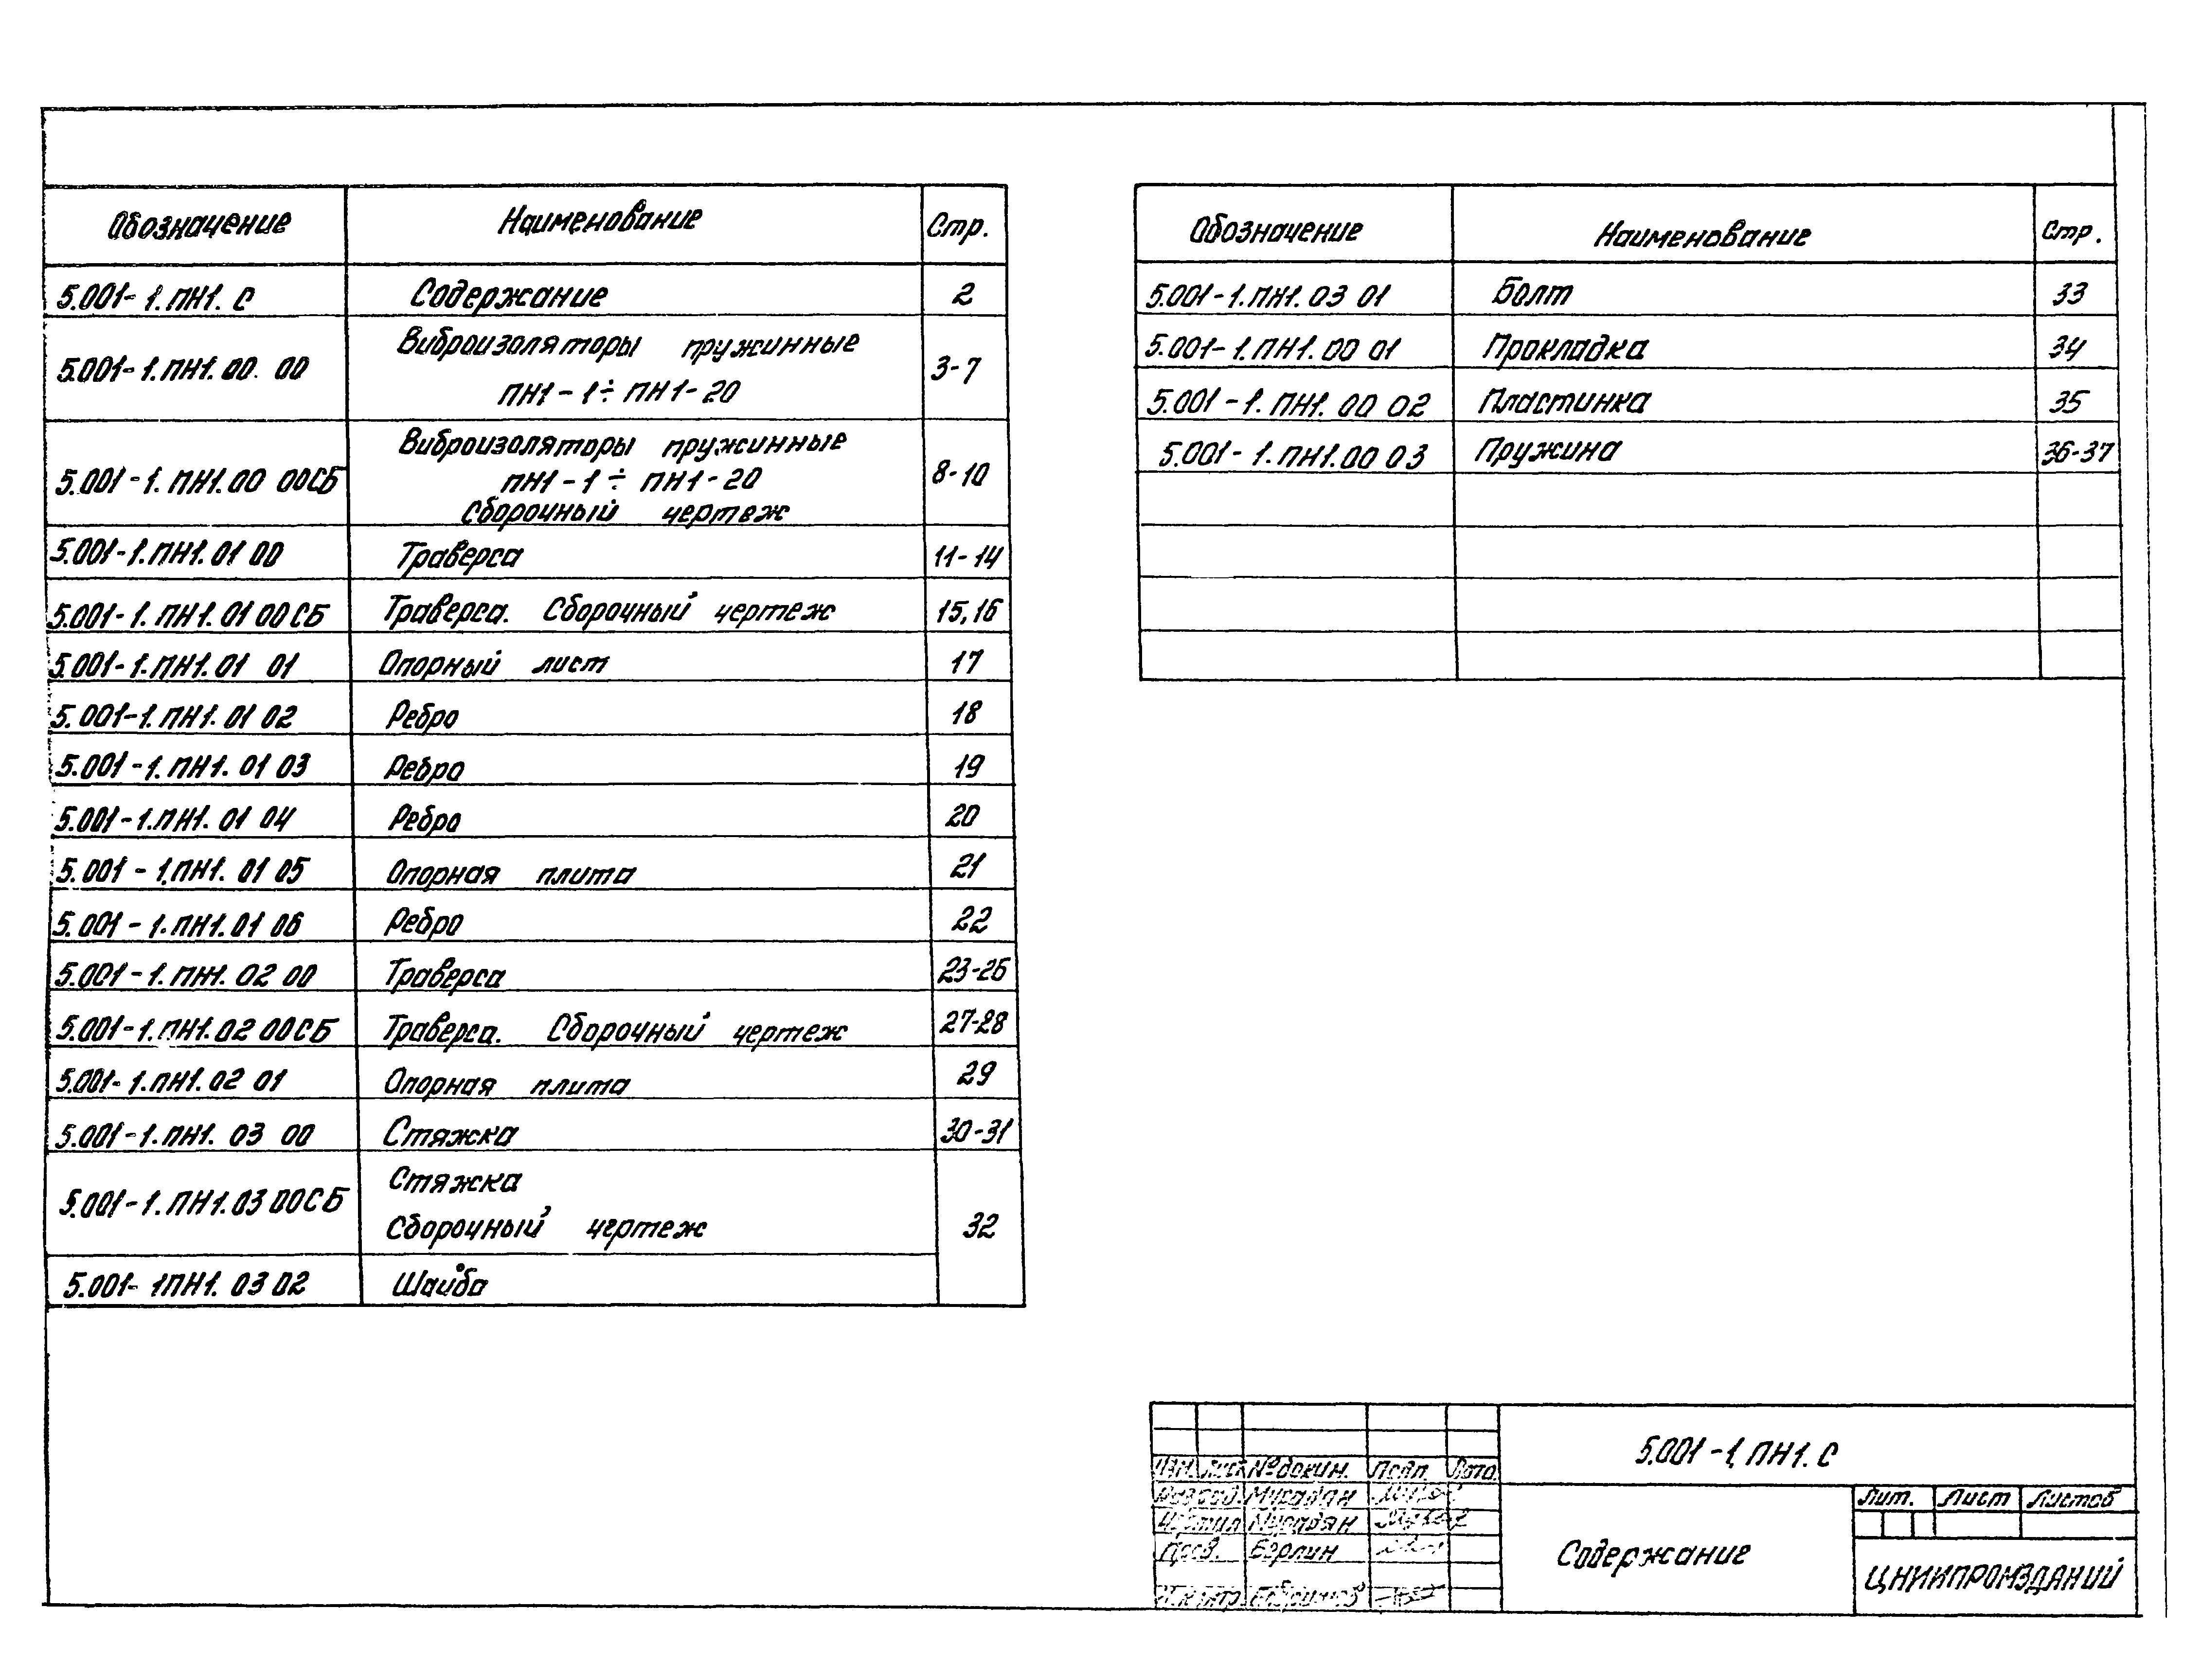 Обозначение Наименование Стр.
5.001-1.ПН1.С Содержание 2
5.001-1.ПН1.00 00 Виброизоляторы пружинные 3-7
ПН1-1÷ПН1-20
5.001-1.ПН1.00 00СБ Виброизоляторы пружинные 8-10
ПН1-1÷ПН1-20
Сборочный чертеж
5.001-1.ПН1.01 00 Траверса 11-14
5.001-1.ПН1.01 00СБ Траверса. Сборочный чертеж 15,16
5.001-1.ПН1.01 01 Опорный лист 17
5.001-1.ПН1.01 02 Ребро 18
5.001-1.ПН1.01 03 Ребро 19
5.001-1.ПН1.01 04 Ребро 20
5.001-1.ПН1.01 05 Опорная плита 21
5.001-1.ПН1.01 06 Ребро 22
5.001-1.ПН1.02 00 Траверса 23-26
5.001-1.ПН1.02 00СБ Траверса. Сборочный чертеж 27-28
5.001-1.ПН1.02 01 Опорная плита 29
5.001-1.ПН1.03 00 Стяжка 30-31
5.001-1.ПН1.03 00СБ Стяжка
Сборочный чертеж 32
5.001-1ПН1.03 02 Шайба
Обозначение Наименование Стр.
5.001-1.ПН1.03 01 Болт 33
5.001-1.ПН1.00 01 Прокладка 34
5.001-1.ПН1.00 02 Пластинка 35
5.001-1.ПН1.00 03 Пружина 36-37
5.001-1.ПН1.С
Изм. Лист №докум. Подп. Дата
Разраб. Мурадян
Мурадян
Пров. Берлин
Н.контр.
Содержание
Лит. Лист Листов
ЦНИИПРОМЗДАНИЙ